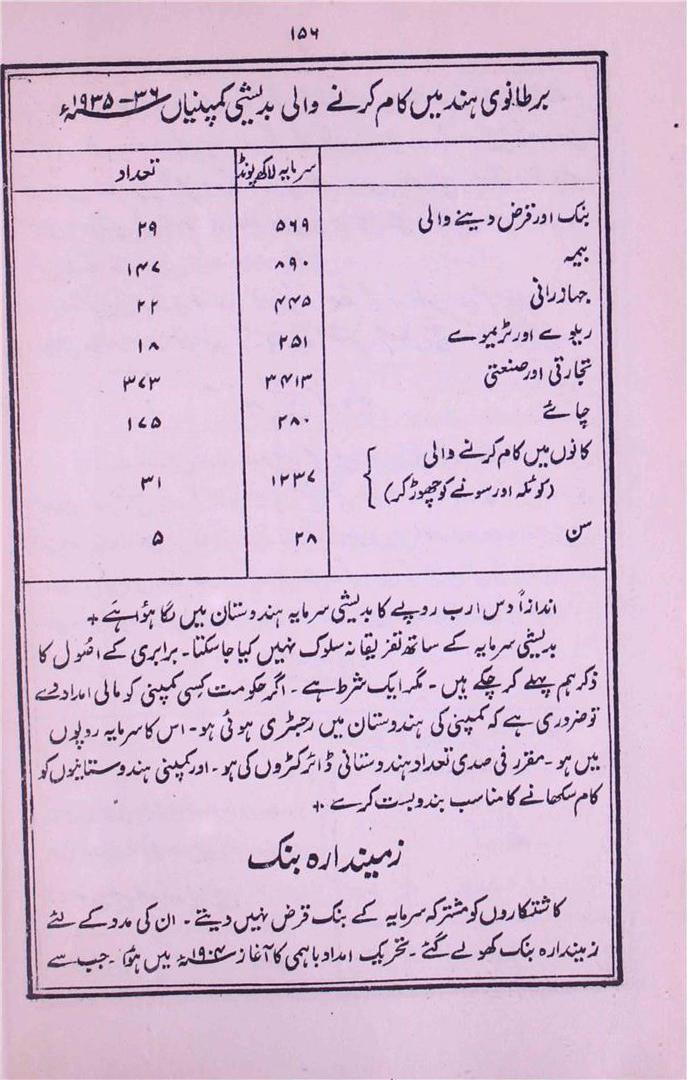 ۱۵۶
برطانوی ہند میں کام کرنے والی بدیشی کمپنیاں ۳۶-۱۹۳۵ء
سرمایہ لاکھ پونڈ تعداد
بنک اور قرض دینے والی ۵۶۹ ۲۹
بیمہ ۸۹۰ ۱۴۷
جہاز رانی ۴۴۵ ۲۲
ریلوے اور ٹریموے ۲۵۱ ۱۸
تجارتی اور صنعتی ۳۴۱۳ ۳۷۳
چائے ۲۸۰ ۱۷۵
کانوں میں کام کرنے والی
(کوئلہ اور سونے کو چھوڑ کر) ۱۲۳۷ ۳۱
سن ۲۸ ۵
اندازاً دس ارب روپے کا بدیشی سرمایہ ہندوستان میں لگا ہؤا ہے +
بدیشی سرمایہ کے ساتھ تفریقانہ سلوک نہیں کیا جا سکتا۔ برابری کے اصول کا
ذکر ہم پہلے کر چکے ہیں۔ مگر ایک شرط ہے۔ اگر حکومت کسی کمپنی کو مالی امداد دے
تو ضروری ہے کہ کمپنی کی ہندوستان میں رجسٹری ہوئی ہو۔ اس کا سرمایہ روپوں
میں ہو۔ مقرر فی صدی تعداد ہندوستانی ڈائرکٹروں کی ہو۔ اور کمپنی ہندوستانیوں کو
کام سکھانے کا مناسب بندوبست کرے +
زمیندارہ بنک
کاشتکاروں کو مشترکہ سرمایہ کے بنک قرض نہیں دیتے۔ ان کی مدد کے لئے
زمیندارہ بنک کھولے گئے۔ تحریک امداد باہمی کا آغاز ۱۹۰۴ء میں ہؤا۔ جب سے